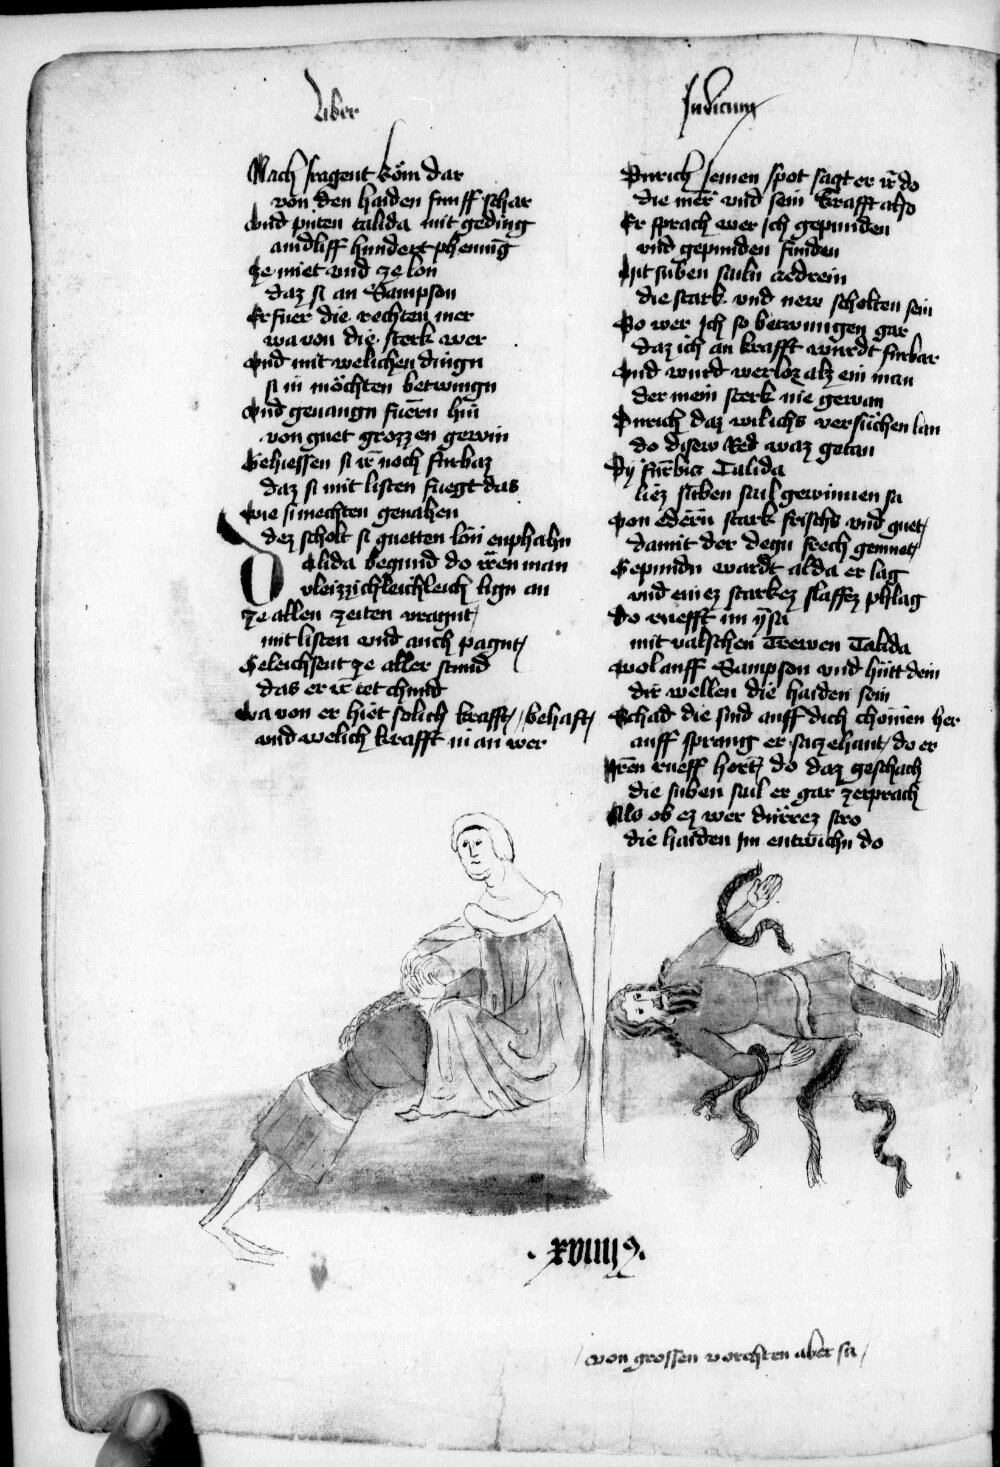 Liber
Judicum
Nach sragent kom dar
von den haiden funff schar
Und puten talida mit geding
aindliff hundert phenning
ze miet und ze lon
daz si an Sampson
Erfuer die rechten mer
wa von die sterk wer
Und mit welichen dingn
si in möchten betwingn
Und geuangn fuern hin
von guet grozzen gewin
Gehiessen si ir noch furbaz
daz si mit listen fuegt das
wie si mechten genahen
dez scholt si guetten lon enphahn
Dalida begund do irren man
vleizzichleich lign an
ze allen zeiten vragnt
mit listen und auch pagnt
Geleichsent ze aller stund
das er ir tet chund
wa von er hiet solich krafft behaft
und welich krafft in an wer
Durich seinen spot sagt er ir do
die mer und sein krafft also
Er sprach wer ich gepunden
und gepunden funden
Mit siben sailn aedrein
die stark und new scholten sein
So wer ich so betwungen gar
daz ich an krafft wurdt furbar
Und wurd werloz alz ein man
der mein sterk nie gewan
Durich daz wilichs versuchen lan
do disew red waz getan
Dy furbig Talida
liez siben sail gewinnen sa
Von edern stark frischs und guet
damit der degn frech gemuet
Gepundn wardt alda er lag
und einez starkez slaffez phlag
Do ruefft im ysa
mit valschen Trewen Talida
Wol auff Sampson und hütt dein
dir wellen die haiden sein
Schad die sind auff dich chomen her
auff sprang er sazehant do er
Iren rueff hort do daz geschach
die siben sail er gar zerprach
Als ob ez wer dürrez stro
die haiden im entwichn do
xviiii9
von grossen vorchten aber sa